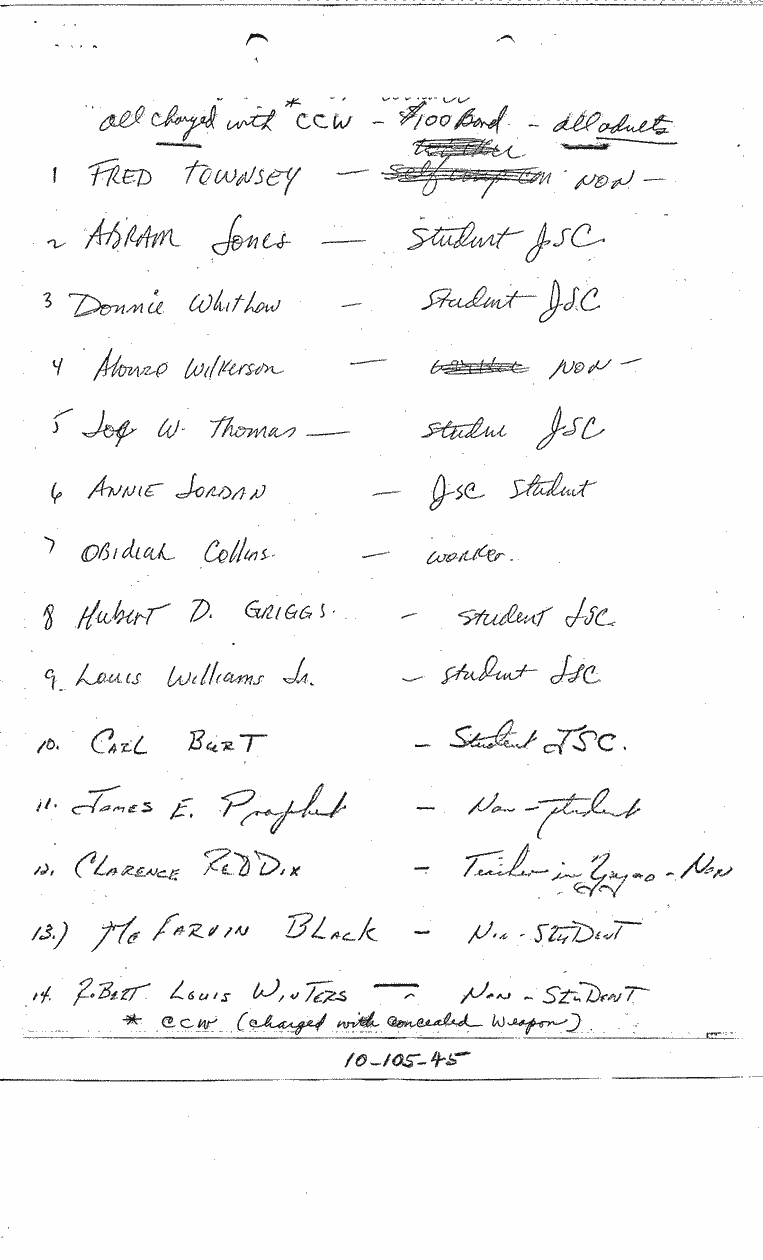 all charged with *CCW - $100 Bond - all adults
1 FRED TOWNSEY — NON —
2 AbRAM Jones — Student JSC
3 Donnie Whitlow — Student JSC
4 Alonzo Wilkerson — NON —
5 Joe W. Thomas — Studne JSC
6 ANNIE JORDAN — JSC Student
7 OBidiah Collins. — worker.
8 Hubert D. GRIGGS. — Student JSC
9. Louis Williams Jr. — Student JSC
10. CARL BURT — Student JSC.
11. JAMES E. Prophet — Non-student
12. CLARENCE REDDIX — Teacher in Yazoo - Non
13.) McFARVIN BLACK — Non-STUDENT
14. ROBERT LOUIS WINTERS — NON-STUDENT
* CCW (charged with concealed Weapon)
10-105-45